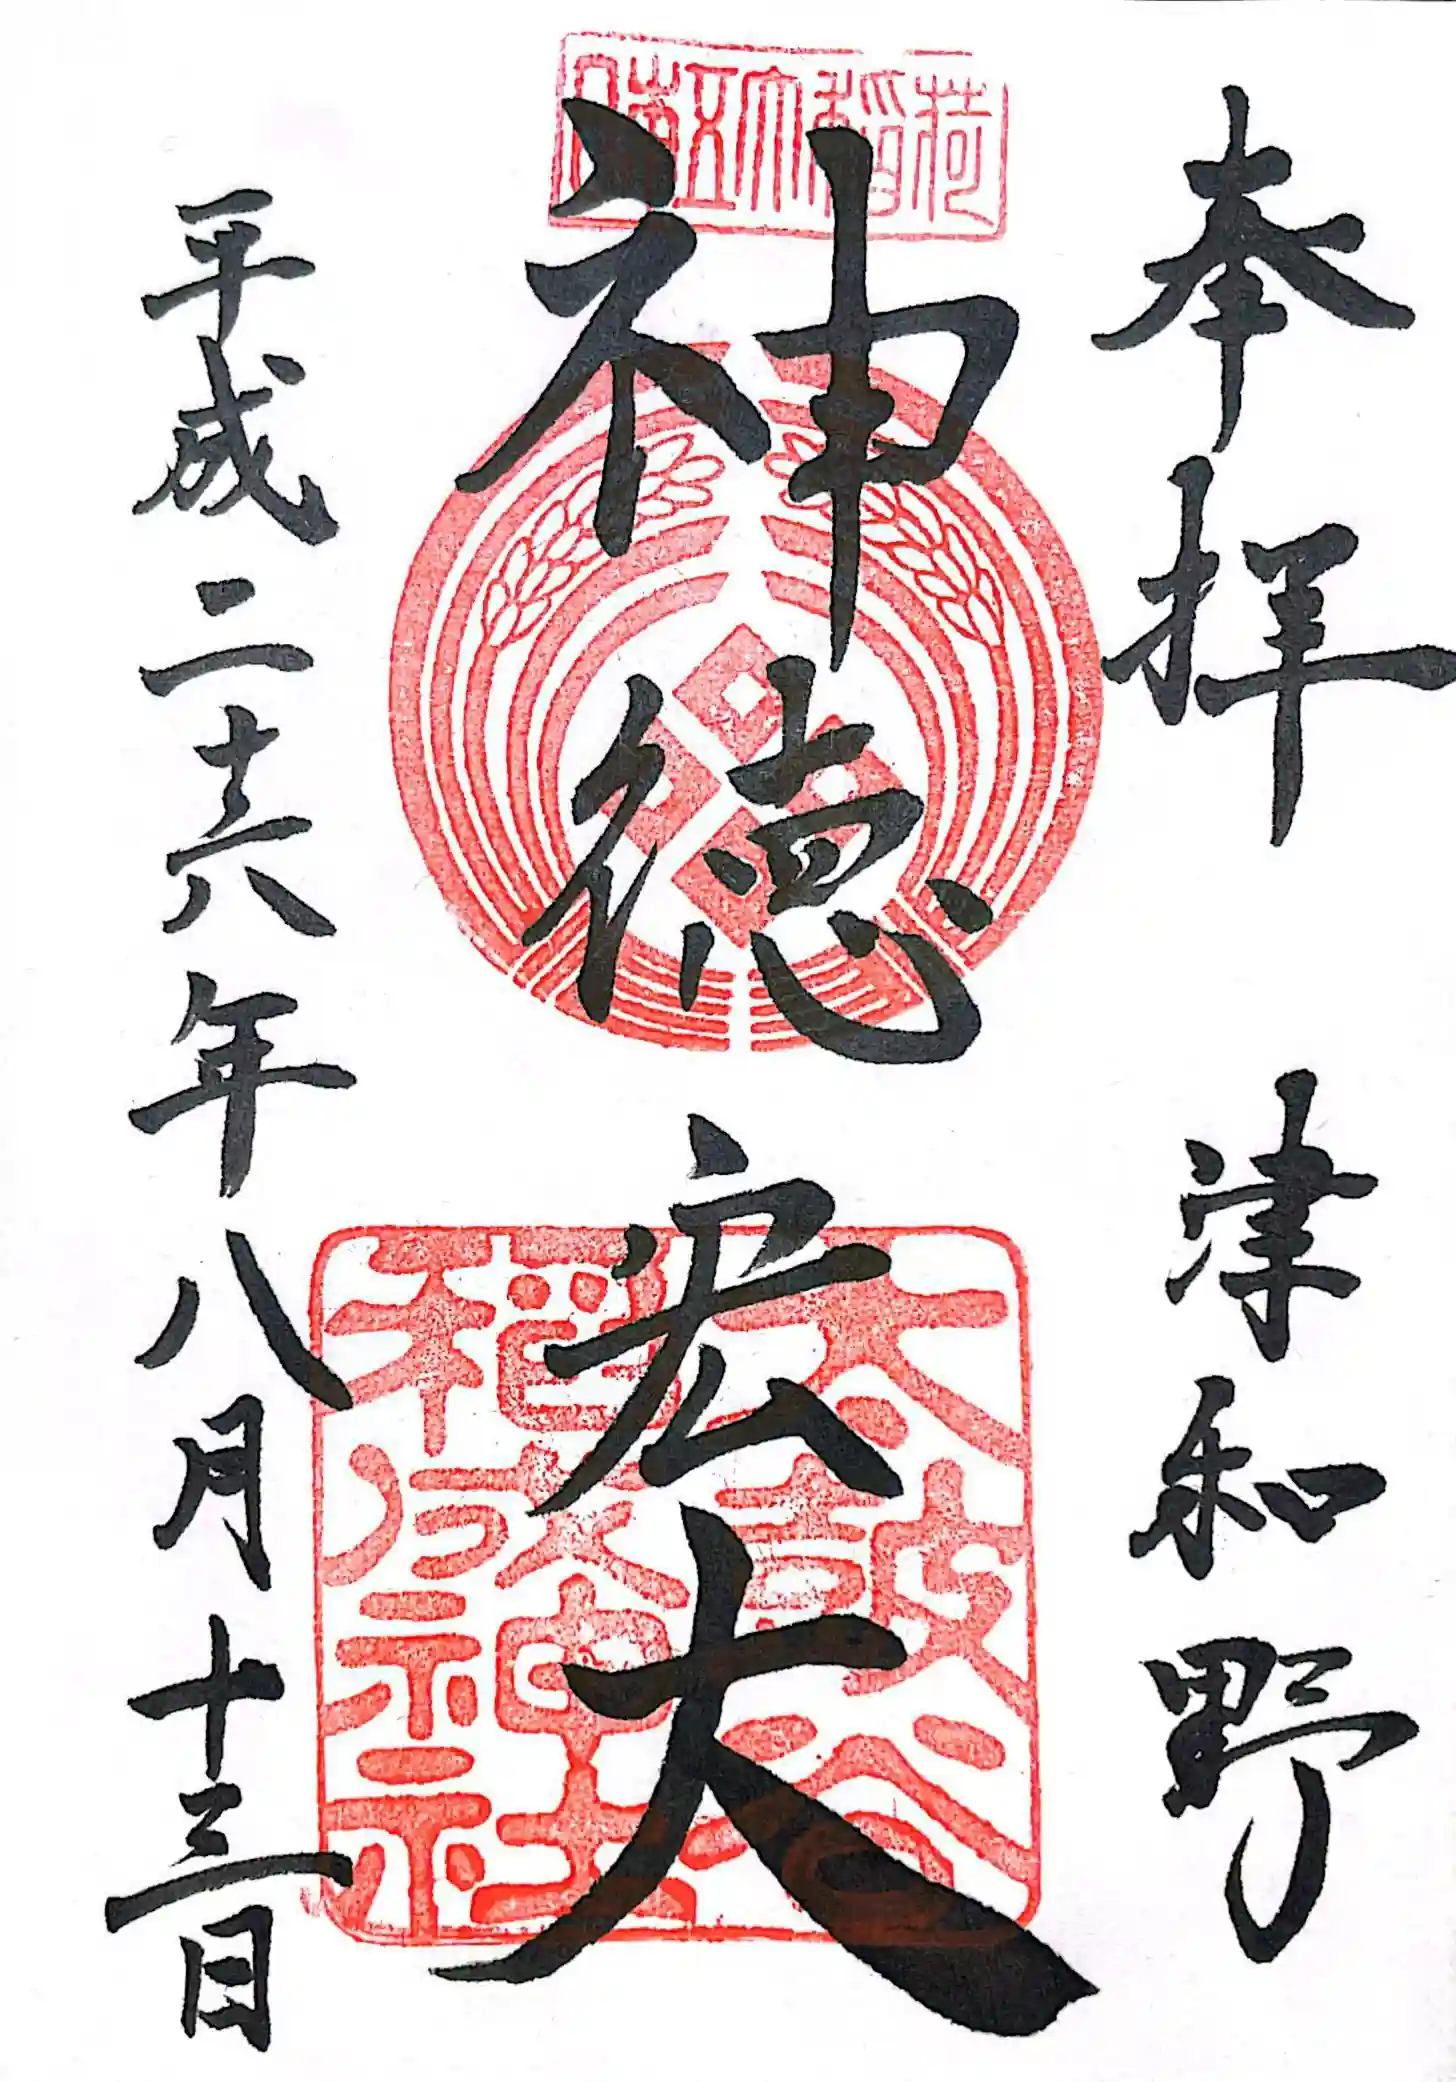 奉拝　津和野
日本五大稲荷
神徳宏大
太皷谷
稲成神社
平成二十六年八月十三日